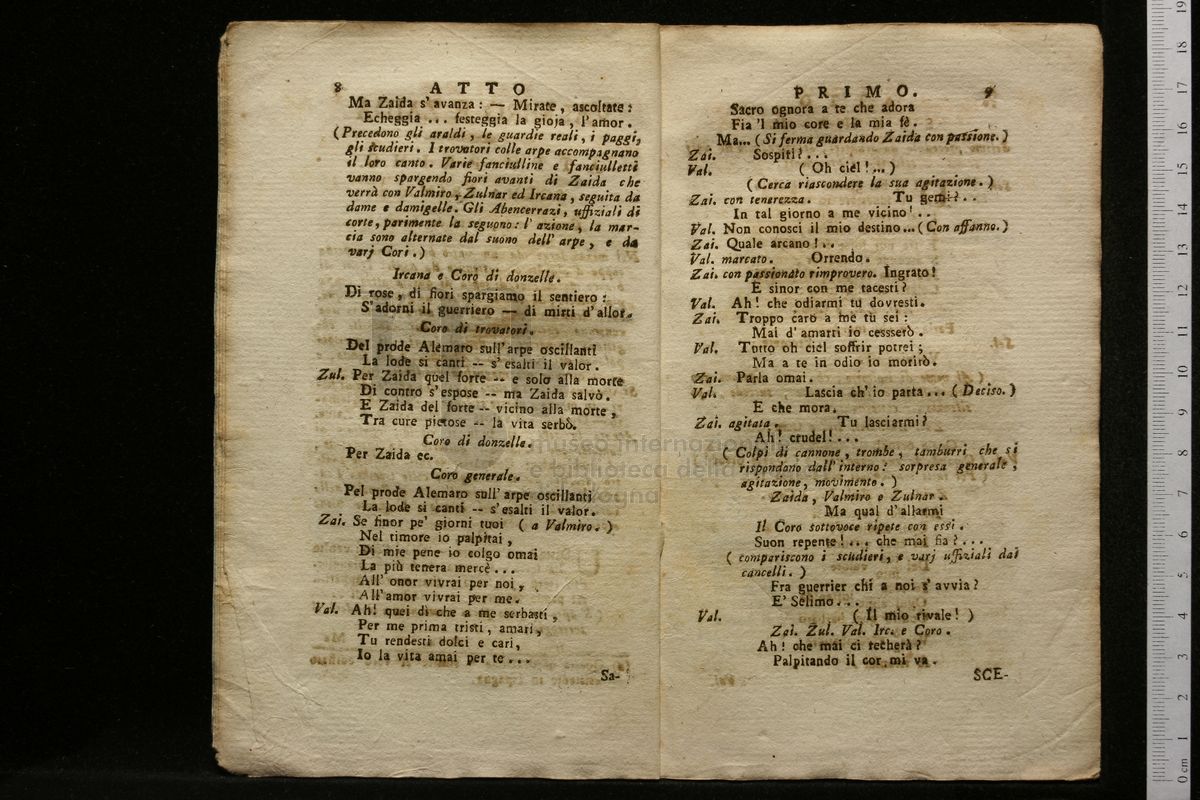 8 ATTO
Ma Zaida s'avanza: — Mirate, ascoltate:
Echeggia ... festeggia la gioja, l'amor.
(Precedono gli araldi, le guardie reali, i paggi,
gli scudieri. I trovatori colle arpe accompagnano
il loro canto. Varie fanciulline e fanciulletti
vanno spargendo fiori avanti di Zaida che
verrà con Valmiro, Zulnar ed Ircana, seguita da
dame e damigelle. Gli Abencerrazi, uffiziali di
corte, parimente la seguono: l'azione, la mar-
cia sono alternate dal suono dell'arpe, e da
varj Cori.)
Ircana e Coro di donzelle.
Di rose, di fiori spargiamo il sentiero:
S'adorni il guerriero — di mirti d'allor.
Coro di trovatori.
Del prode Alemaro sull'arpe oscillanti
La lode si canti -- s'esalti il valor.
Zul. Per Zaida quel forte -- e solo alla morte
Di contro s'espose -- ma Zaida salvò.
E Zaida del forte -- vicino alla morte,
Tra cure pietose -- la vita serbò.
Coro di donzelle.
Per Zaida ec.
Coro generale.
Pel prode Alemaro sull'arpe oscillanti
La lode si canti -- s'esalti il valor.
Zai. Se finor pe' giorni tuoi (a Valmiro.)
Nel timore io palpitai,
Di mie pene io colgo omai
La più tenera mercè...
All'onor vivrai per noi,
All'amor vivrai per me.
Val. Ah! quei dì che a me serbasti,
Per me prima tristi, amari,
Tu rendesti dolci e cari,
Io la vita amai per te...
Sa-
PRIMO. 9
Sacro ognora a te che adora
Fia 'l mio core e la mia fè.
Ma... (Si ferma guardando Zaida con passione.)
Zai. Sospiri?...
Val. (Oh ciel!...)
(Cerca riascondere la sua agitazione.)
Zai. con tenerezza. Tu gemi?..
In tal giorno a me vicino!..
Val. Non conosci il mio destino...(Con affanno.)
Zai. Quale arcano!..
Val. marcato. Orrendo.
Zai. con passionato rimprovero. Ingrato!
E sinor con me tacesti?
Val. Ah! che odiarmi tu dovresti.
Zai. Troppo caro a me tu sei:
Mai d'amarti io cessserò.
Val. Tutto oh ciel soffrir potrei;
Ma a te in odio io morirò.
Zai. Parla omai.
Val. Lascia ch'io parta... (Deciso.)
E che mora.
Zai. agitata. Tu lasciarmi?
Ah! crudel!...
(Colpi di cannone, trombe, tamburri che si
rispondono dall'interno: sorpresa generale,
agitazione, movimento.)
Zaida, Valmiro e Zulnar.
Ma qual d'allarmi
Il Coro sottovoce ripete con essi.
Suon repente!... che mai fia?...
(compariscono i scudieri, e varj uffiziali dai
cancelli.)
Fra guerrier chi a noi s'avvia?
E' Selimo...
Val. (Il mio rivale!)
Zai. Zul. Val. Irc. e Coro.
Ah! che mai ci recherà?
Palpitando il cor mi va.
SCE-
museo internazionale
e biblioteca della
bologna
0 cm 1 2 3 4 5 6 7 8 9 10 11 12 13 14 15 16 17 18 19